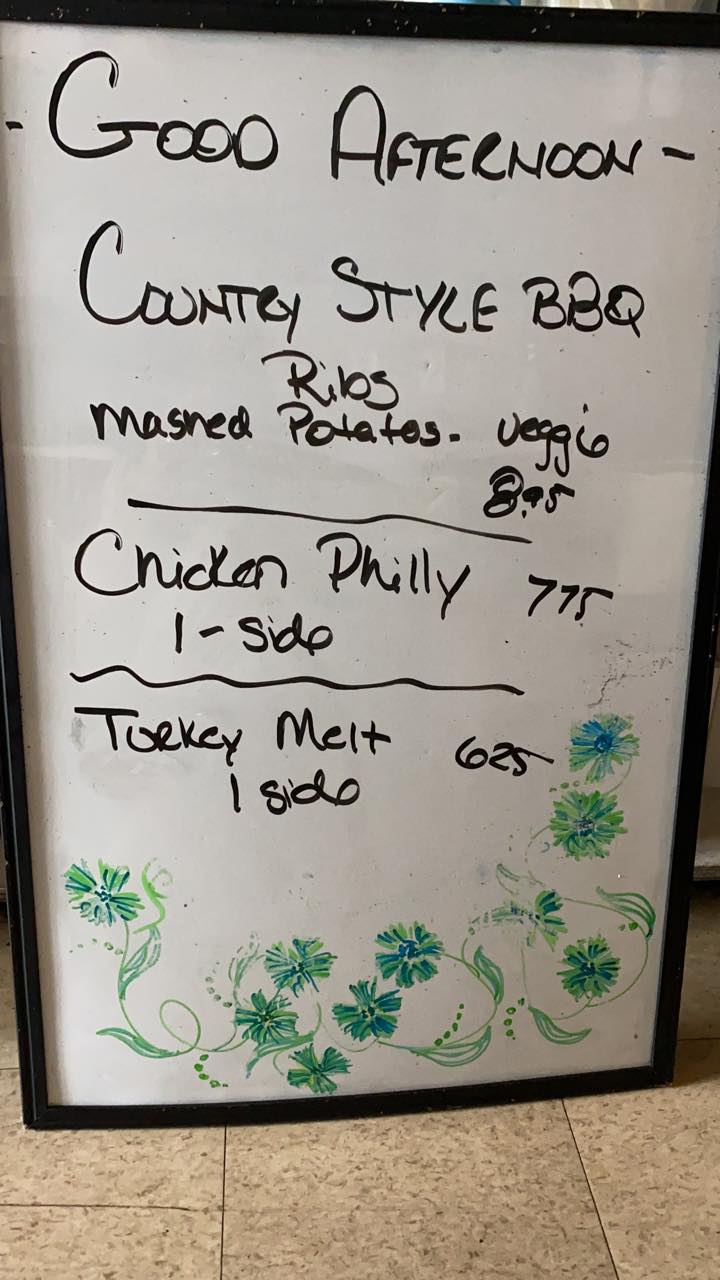 - GOOD AFTERNOON -
COUNTRY STYLE BBQ
Ribs
Mashed Potatoes. veggie
8.95
Chicken Philly 775
1 - side
Turkey Melt 625
1 side